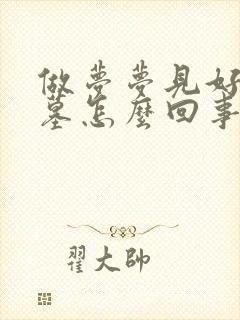 做夢夢見好
墓怎麼回事
翟大帥